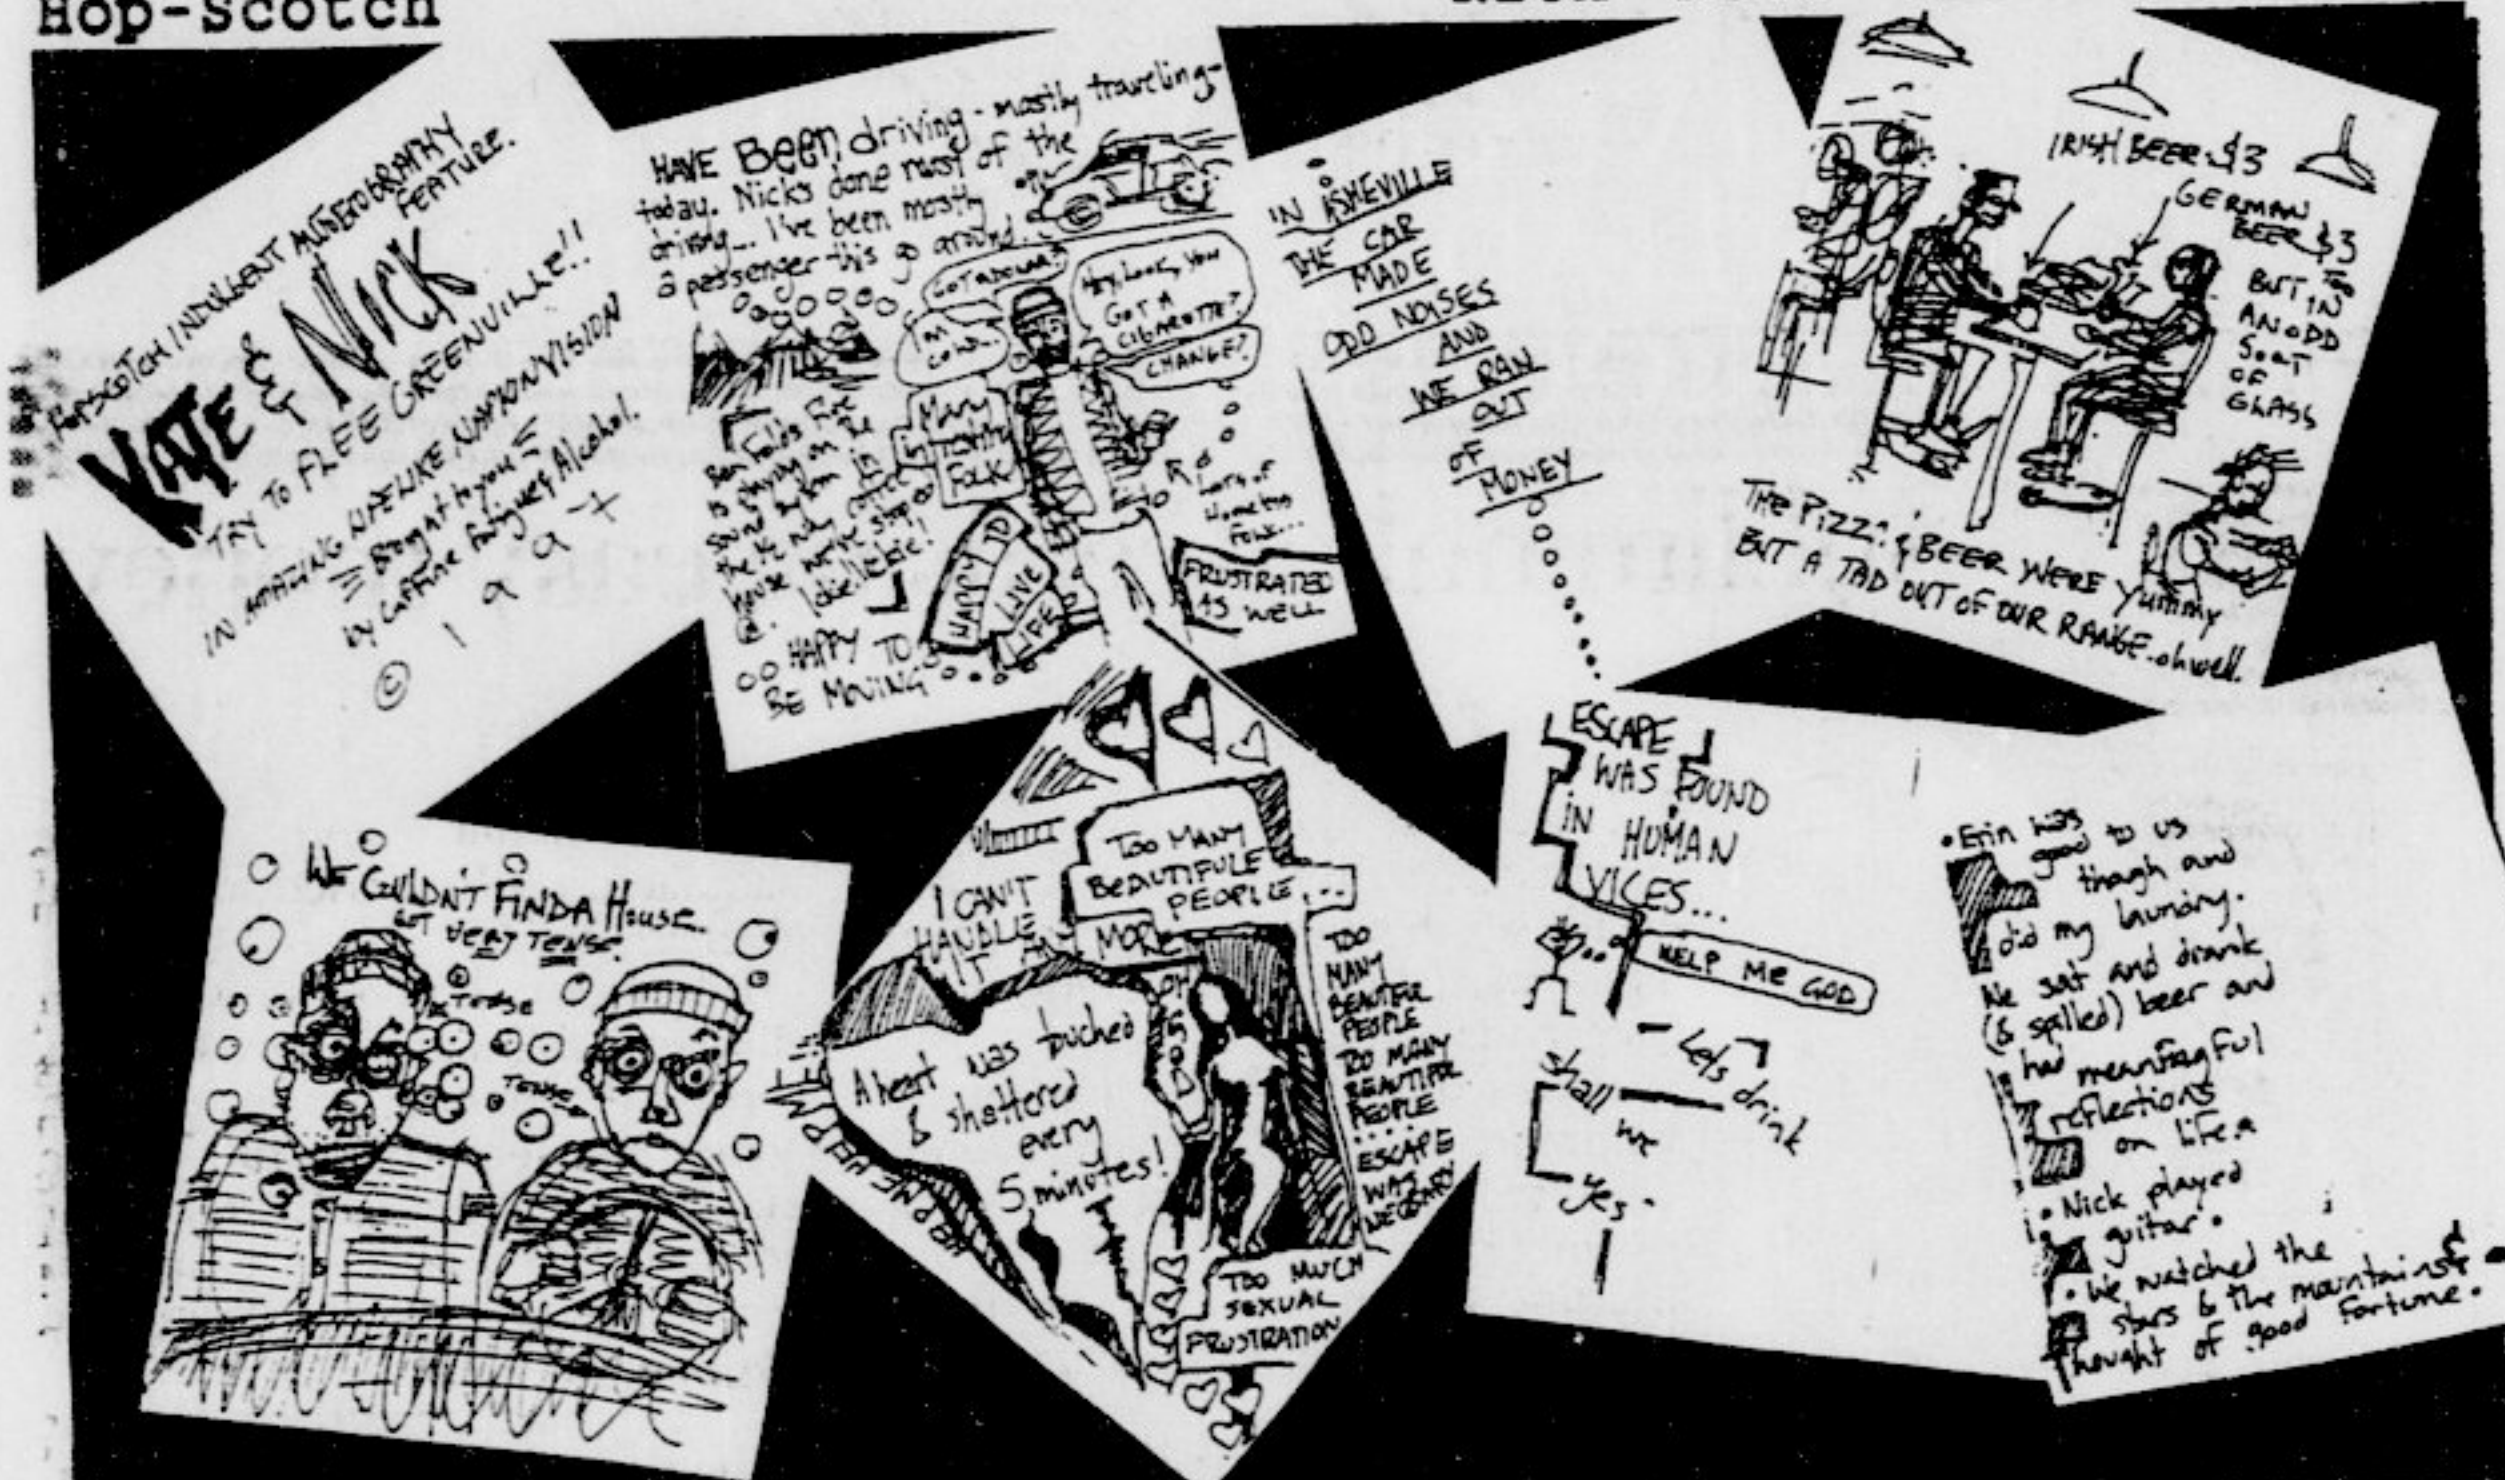 Hop-Scotch
HOPSCOTCH INDULGENT AUTOBIOGRAPHY
FEATURE.
KATE
&
NICK
TRY TO FLEE GREENVILLE!!
IN AMAZING LIFELIKE NAPKINVISION
Brought to you
by Caffeine fatigue & Alcohol.
©
HAVE BEEN driving - mostly traveling-
today. Nicks done most of the
driving... I've been mostly
a passenger this go around..
I'M
COLD...
Hey, Look, You
GOT A
CIGARETTE?
CHANGE?
MANY
TOWN
FOLK
Ben Folds Five
is playing on the
HAPPY TO
LIVE
LIFE
LOTS OF
FOLK...
FRUSTRATED
AS WELL
HAPPY TO
BE MOVING
IN ASHEVILLE
THE CAR
MADE
ODD NOISES
AND
WE RAN
OUT
OF
MONEY
IRISH BEER $3
GERMAN
BEER $3
BUT IN
AN ODD
SORT
OF
GLASS
THE PIZZA & BEER WERE yummy
BUT A TAD OUT OF OUR RANGE. oh well.
WE COULDN'T FIND A HOUSE.
GOT VERY TENSE.
TENSE
TENSE
TOO MANY
BEAUTIFULE
PEOPLE...
I CAN'T
HANDLE
IT
MORE
A heart was touched
& shattered
every
5 minutes!
HELP ME HELP ME
OH GOD
TOO
MANY
BEAUTIFR
PEOPLE
TOO MANY
BEAUTIFR
PEOPLE
....
ESCAPE
WAS
NECESSARY
TOO MUCH
SEXUAL
FRUSTRATION
ESCAPE
WAS FOUND
IN HUMAN
VICES...
HELP ME GOD
- Let's
drink
shall
we
- yes -
• Erin was
good to us
though and
did my laundry.
We sat and drank
(& spilled) beer and
had meaningful
reflections
on life.
• Nick played
guitar •
• We watched the
stars & the mountains &
thought of good fortune.